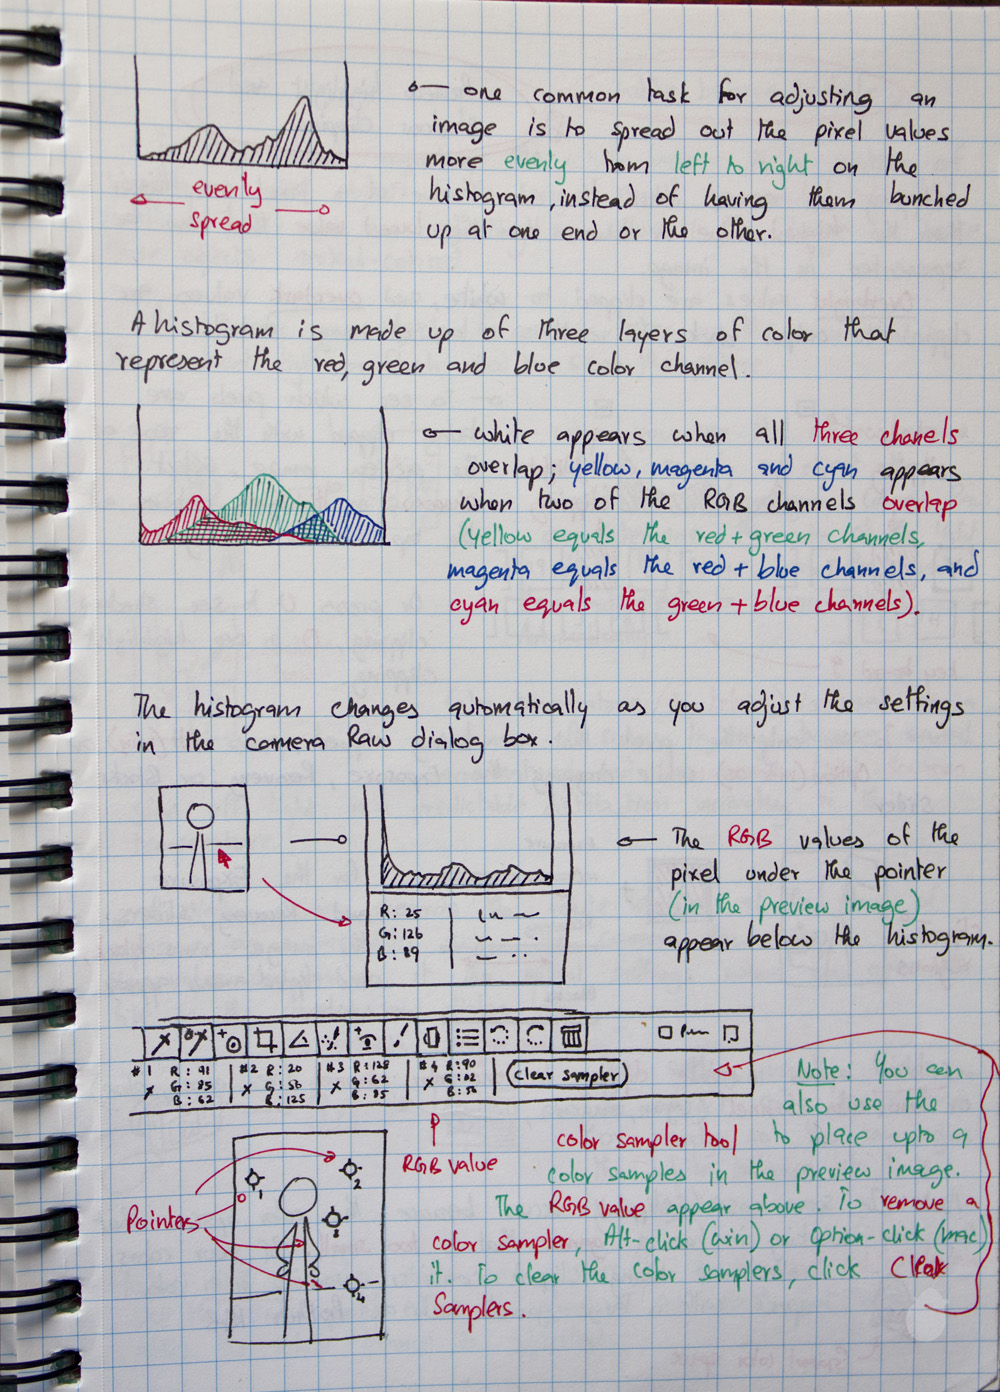 one common task for adjusting an
image is to spread out the pixel values
more evenly from left to right on the
histogram, instead of having them bunched
up at one end or the other.
evenly
spread
A histogram is made up of three layers of color that
represent the red, green and blue color channel.
white appears when all three chanels
overlap; yellow, magenta and cyan appears
when two of the RGB channels overlap
(yellow equals the red + green channels,
magenta equals the red + blue channels, and
cyan equals the green + blue channels).
The histogram changes automatically as you adjust the settings
in the camera Raw dialog box.
The RGB values of the
pixel under the pointer
(in the preview image)
appear below the histogram.
R: 25
G: 126
B: 89
#1 R: 91
G: 85
B: 62
#2 R: 20
G: 56
B: 125
#3 R: 128
G: 62
B: 85
#4 R: 90
G: 82
B: 56
(clear sampler)
RGB value
Pointers
1
2
3
4
Note: You can
also use the
color sampler tool to place upto 9
color samples in the preview image.
The RGB value appear above. To remove a
color sampler, Alt-click (win) or Option-click (mac)
it. To clear the color samplers, click Clear
Samplers.